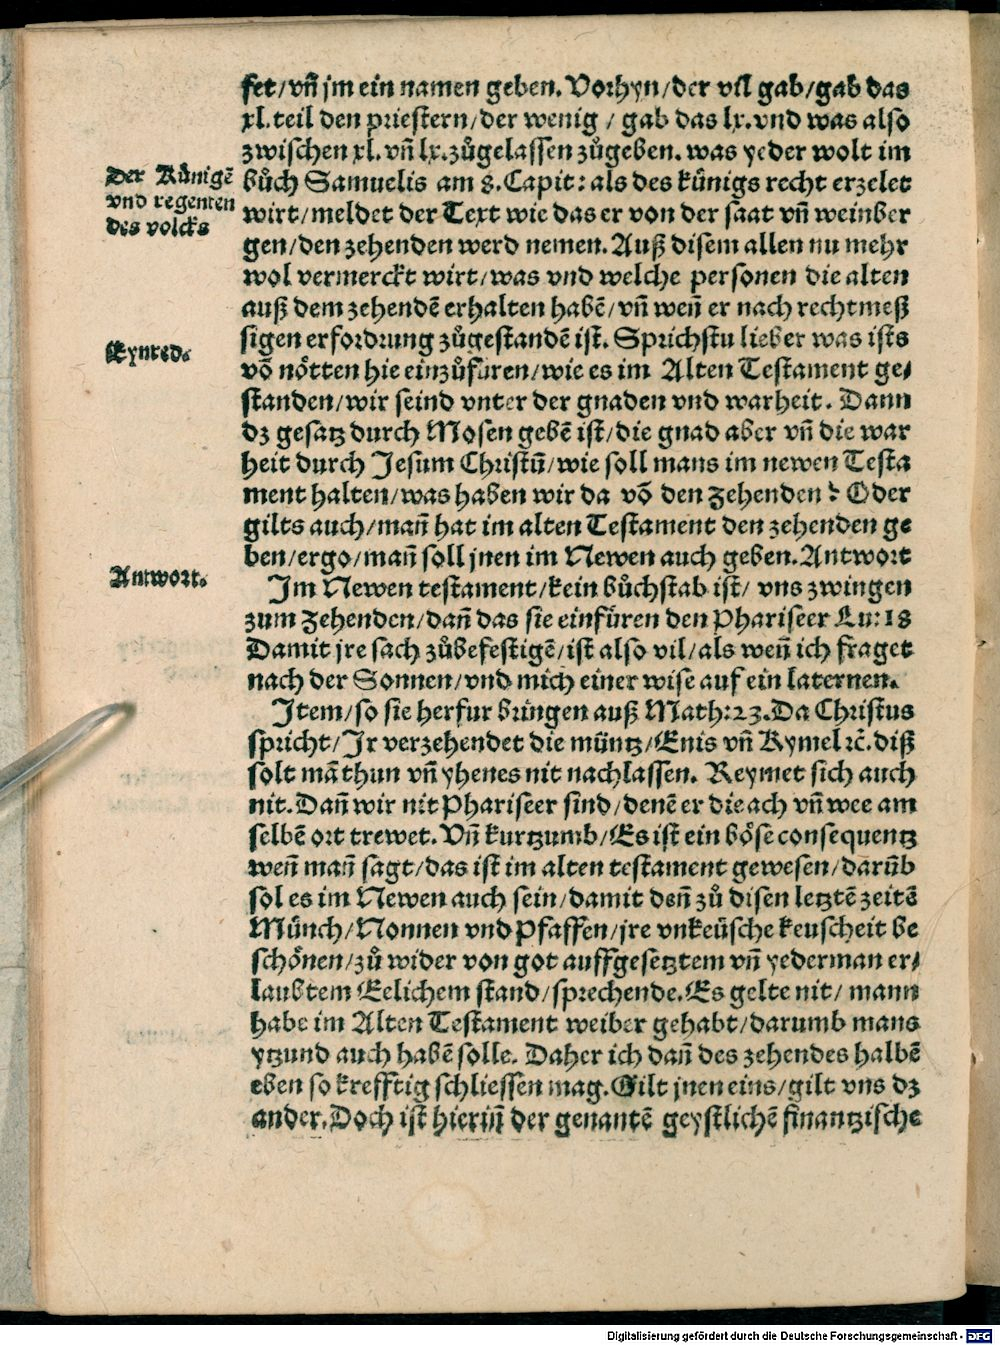 set/vñ jm ein namen geben. Vorhyn/der vil gab/gab das
xl. teil den priestern/der wenig / gab das lx. vnd was also
zwischen xl. vñ lx. zůgelassen zůgeben. was yeder wolt im
Der Künigẽ
vnd regenten
des volcks
bůch Samuelis am 8. Capit: als des künigs recht erzelet
wirt/meldet der Text wie das er von der saat vñ weinber
gen/den zehenden werd nemen. Auß disem allen nu mehr
wol vermerckt wirt/was vnd welche personen die alten
auß dem zehendẽ erhalten habẽ/vñ weñ er nach rechtmeß
Eynred.
sigen erfordrung zůgestandẽ ist. Sprichstu lieber was ists
võ nötten hie einzůfüren/wie es im Alten Testament ge/
standen/wir seind vnter der gnaden vnd warheit. Dann
dz gesatz durch Mosen gebẽ ist/die gnad aber vñ die war
heit durch Jesum Christũ/wie soll mans im newen Testa
ment halten/was haben wir da võ den Zehenden? Oder
gilts auch/mañ hat im alten Testament den zehenden ge
ben/ergo/mañ soll jnen im Newen auch geben. Antwort
Antwort.
Im Newen testament/kein bůchstab ist/ vns zwingen
zum Zehenden/dañ das sie einfüren den Phariseer Lu: 18
Damit jre sach zůbefestigẽ/ist also vil/als weñ ich fraget
nach der Sonnen/vnd mich einer wise auf ein laternen.
Item/so sie herfur bringen auß Math: 23. Da Christus
spricht/Ir verzehendet die müntz/Enis vñ Kymel ꝛc̃. diß
solt mã thun vñ yhenes nit nachlassen. Reymet sich auch
nit. Dañ wir nit Phariseer sind/denẽ er die ach vñ wee am
selbẽ ort trewet. Vñ kurtzumb/Es ist ein böse consequentz
weñ mañ sagt/das ist im alten testament gewesen/darũb
sol es im Newen auch sein/damit deñ zů disen letztẽ zeitẽ
Münch/Nonnen vnd Pfaffen/jre vnkeüsche keuscheit be
schönen/zů wider von got auffgesetztem vñ yederman er/
laubtem Eelichem stand/sprechende. Es gelte nit/ mann
habe im Alten Testament weiber gehabt/darumb mans
ytzund auch habẽ solle. Daher ich dañ des zehendes halbẽ
eben so krefftig schliessen mag. Gilt jnen eins/gilt vns dz
ander. Doch ist hieriñ der genantẽ geystlichẽ finantzische
Digitalisierung gefördert durch die Deutsche Forschungsgemeinschaft - DFG